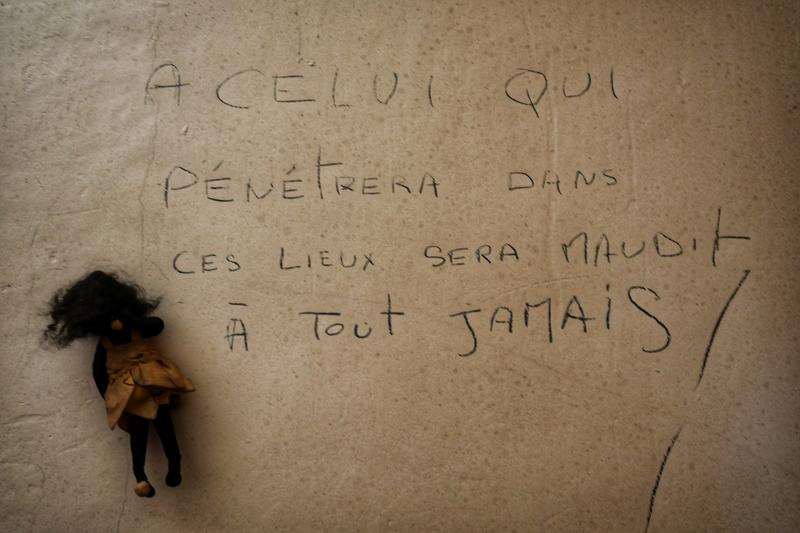 A CELUI QUI
PÉNÉTRERA DANS
CES LIEUX SERA MAUDIT
À TOUT JAMAIS